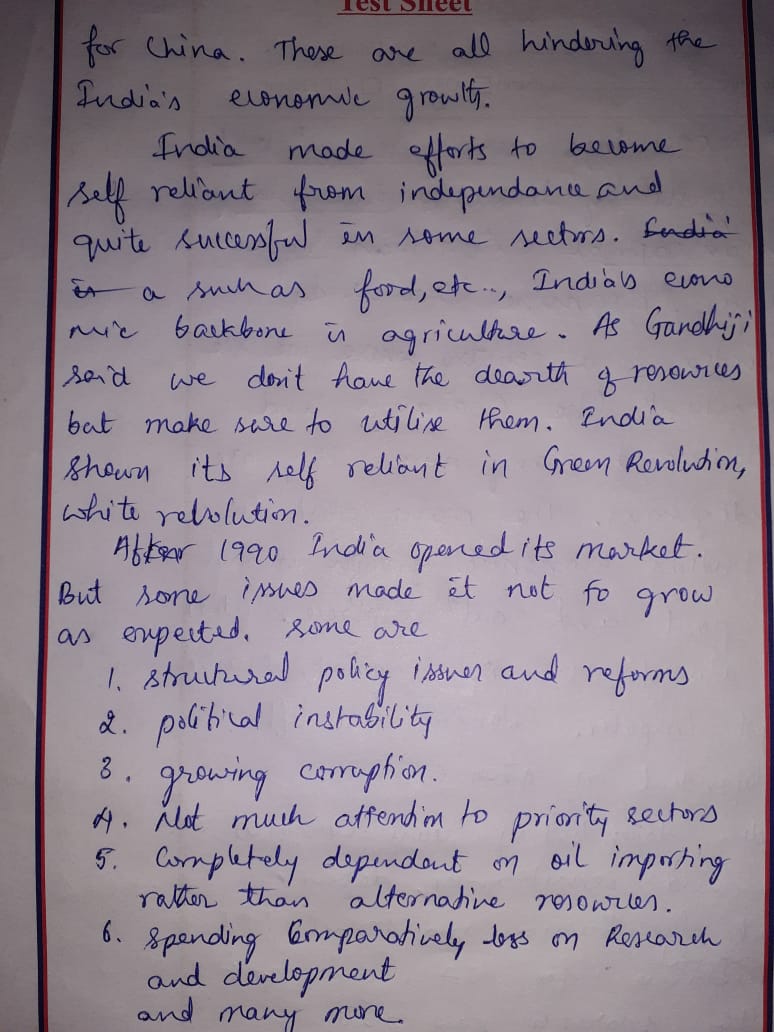 Test Sheet
for China. These are all hindering the
India's economic growth.
India made efforts to become
self reliant from independance and
quite successful in some sectors. India
is a such as food, etc.., India's econo
mic backbone is agriculture. As Gandhiji
said we don't have the dearth of resources
but make sure to utilise them. India
shown its self reliant in Green Revolution,
white revolution.
After 1990 India opened its market.
But some issues made it not to grow
as expected. some are
1. structural policy issues and reforms
2. political instability
3. growing corruption.
4. Not much attention to priority sectors
5. Completely dependent on oil importing
rather than alternative resources.
6. Spending Comparatively less on Research
and development
and many more.